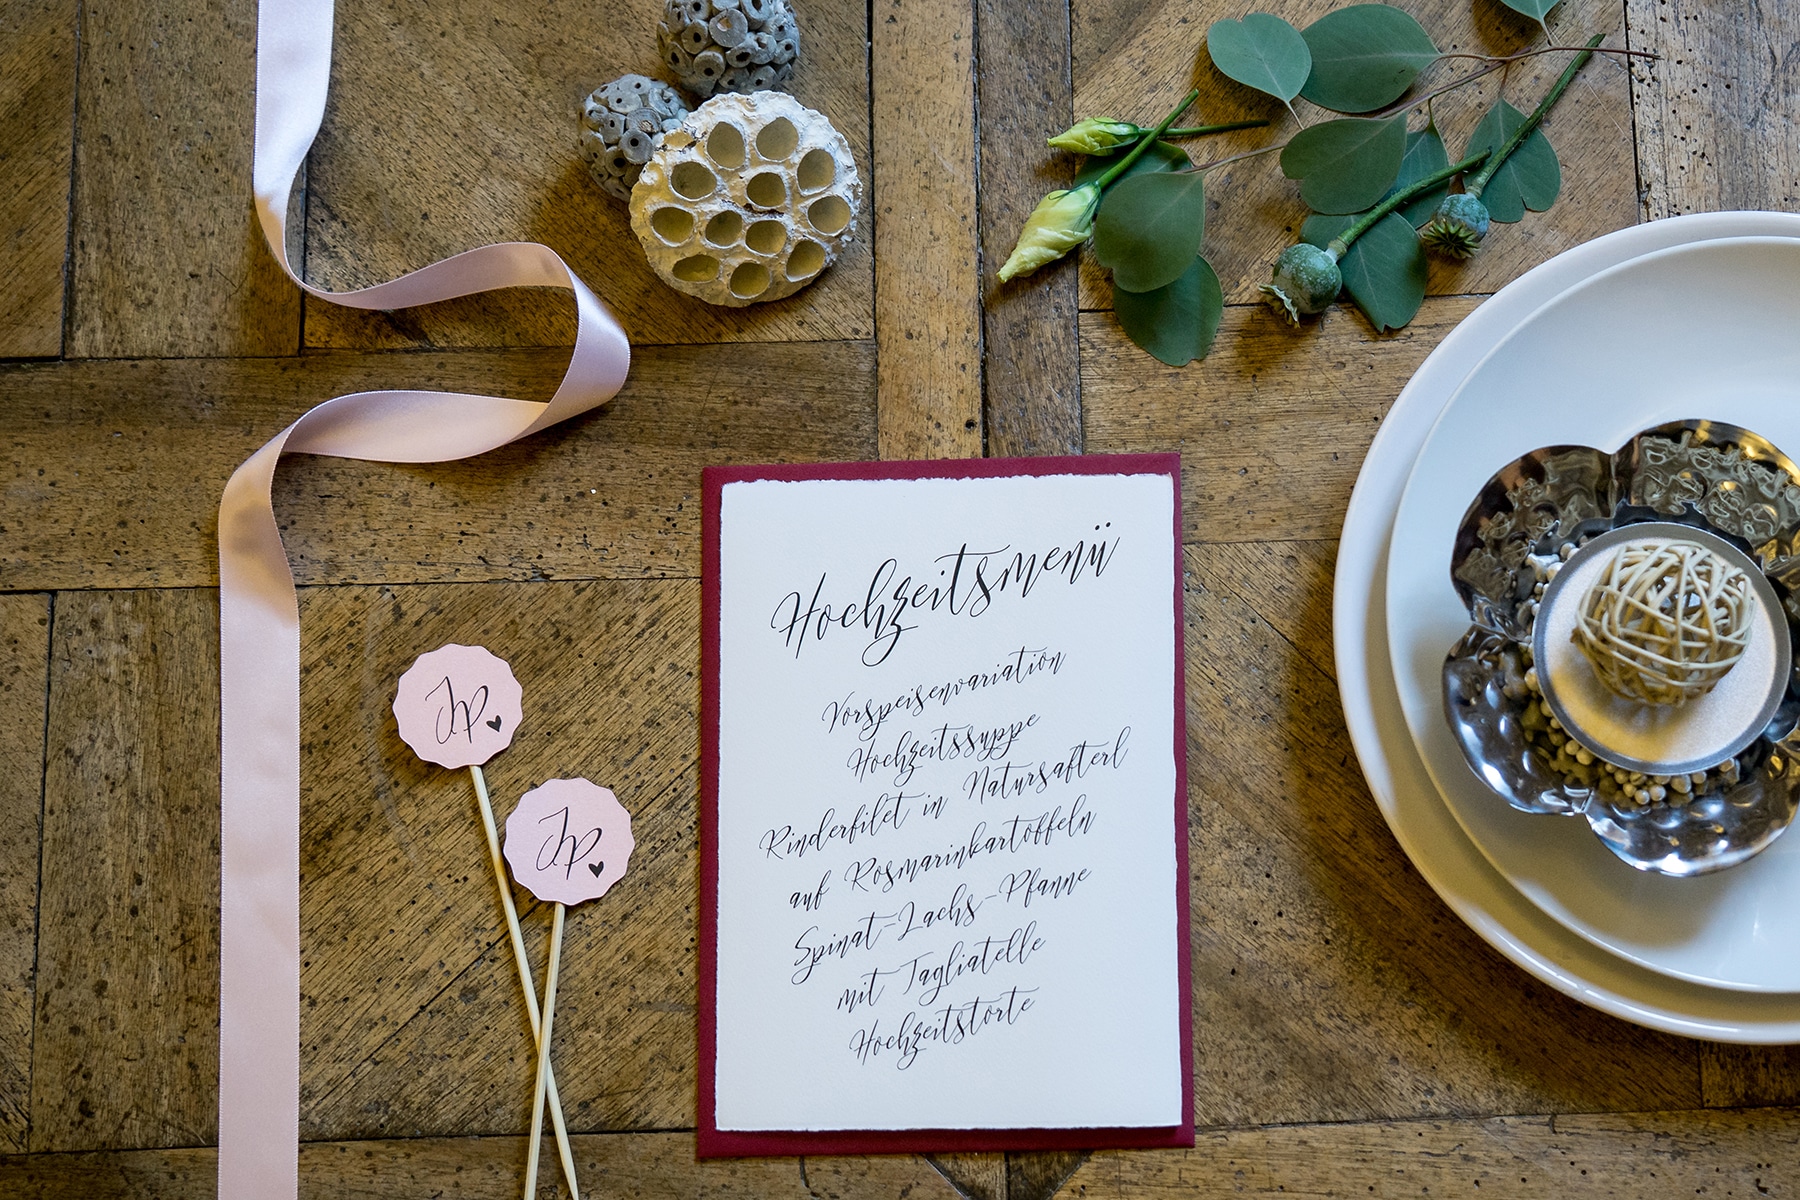 Hochzeitsmenü
Vorspeisenvariation
Hochzeitssuppe
Rinderfilet in Natursafterl
auf Rosmarinkartoffeln
Spinat-Lachs-Pfanne
mit Tagliatelle
Hochzeitstorte
JP
JP